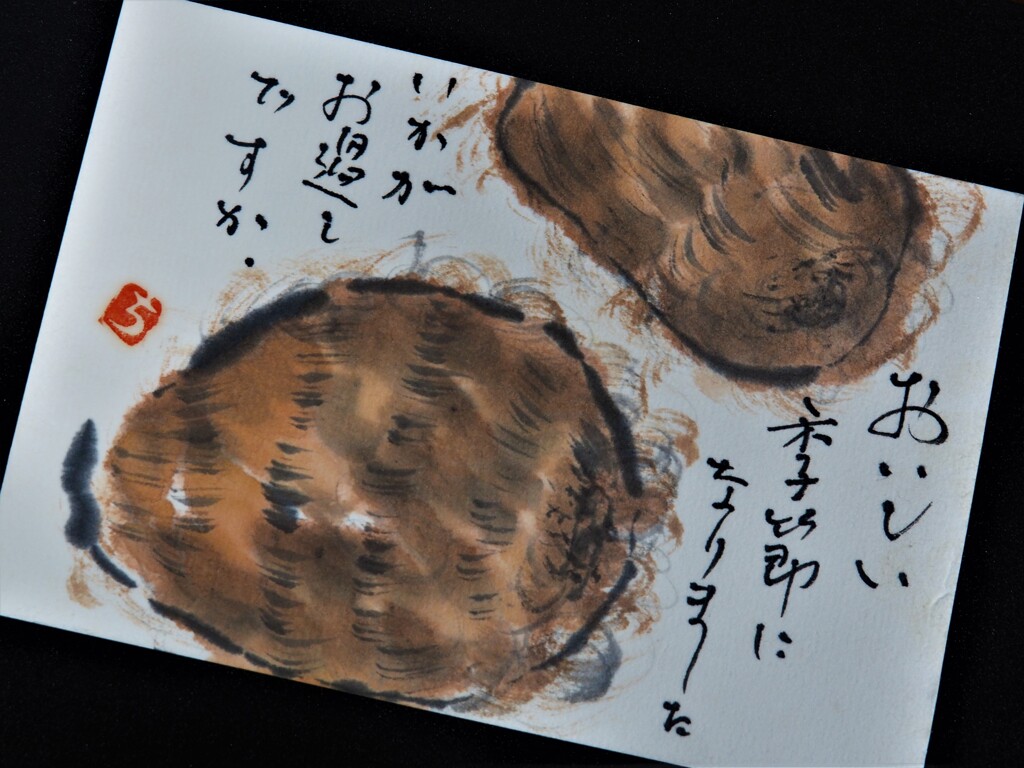 おいしい
季節に
なりました
いかが
お過し
ですか.
ち